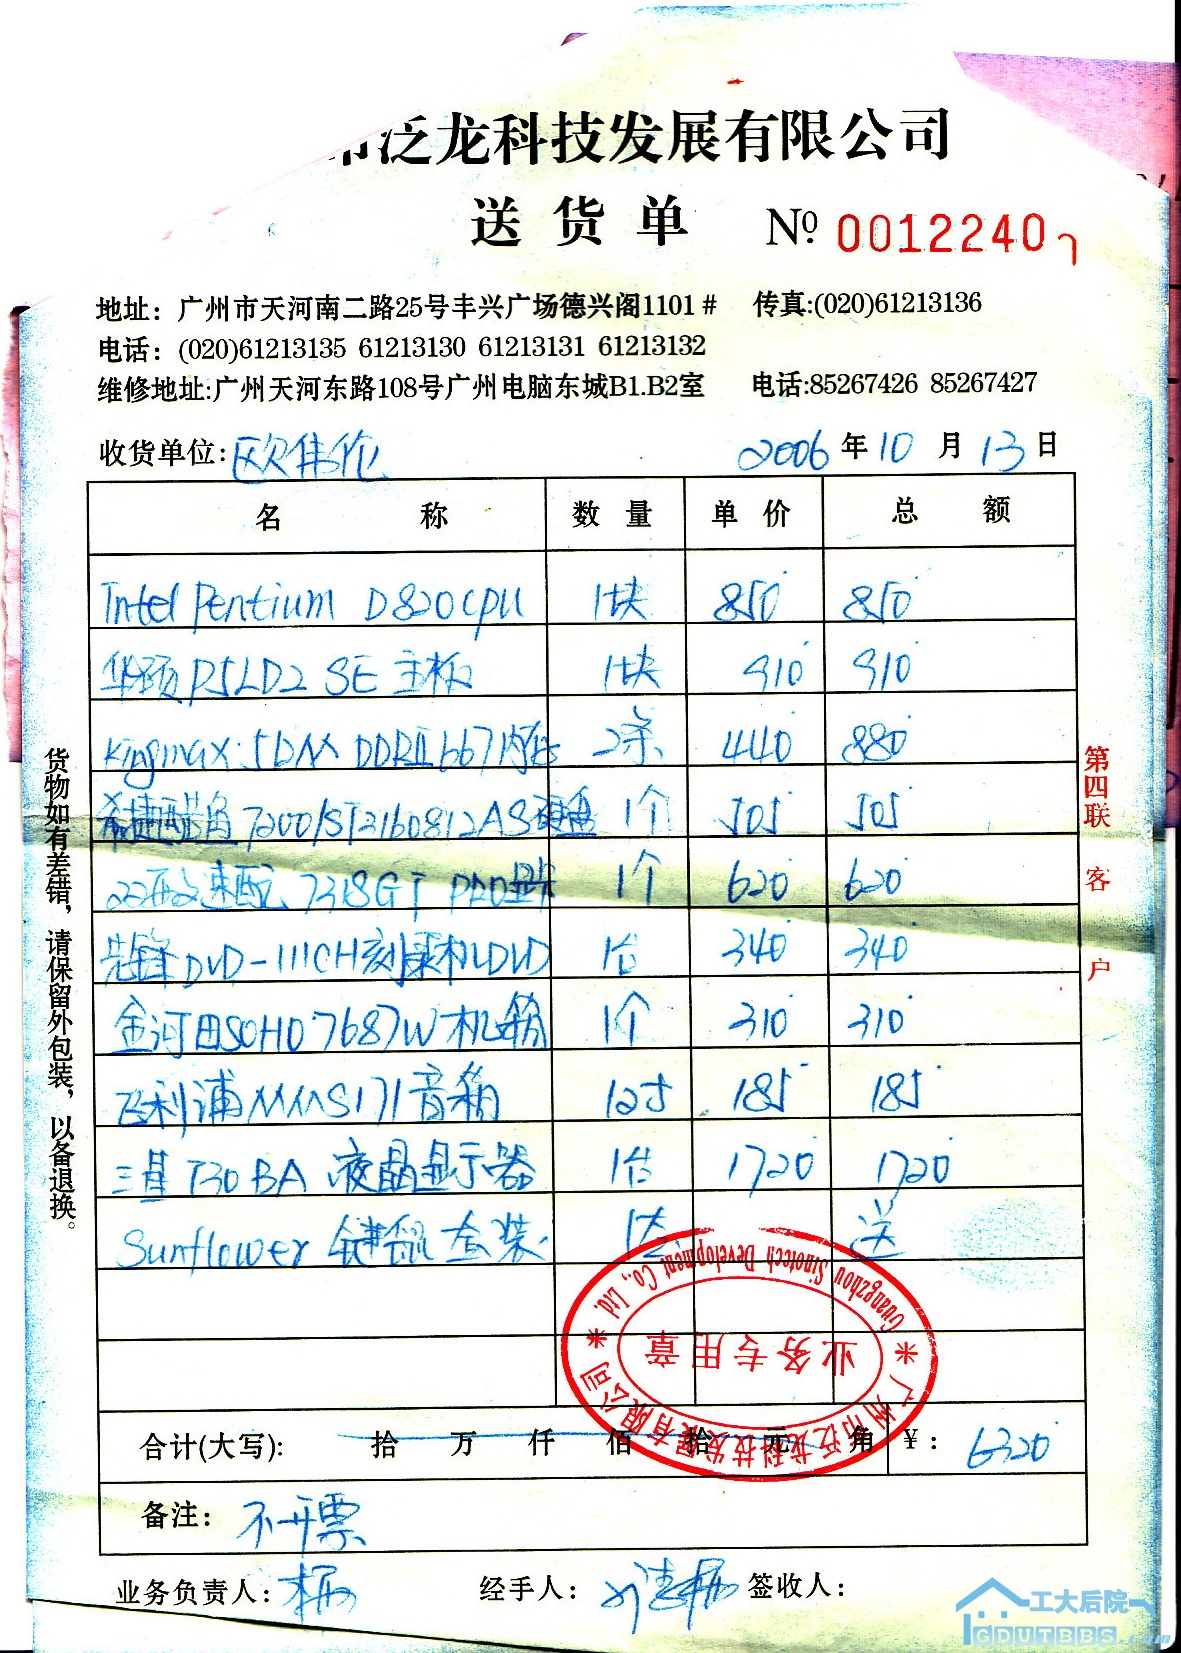 市泛龙科技发展有限公司
送货单 № 0012240
地址：广州市天河南二路25号丰兴广场德兴阁1101# 传真:(020)61213136
电话：(020)61213135 61213130 61213131 61213132
维修地址:广州天河东路108号广州电脑东城B1.B2室 电话:85267426 85267427
收货单位: 欧伟伦 2006年10月13日
名称 数量 单价 总额
Intel Pentium D820CPU 1块 850 850
华硕P5LD2 SE主板 1块 910 910
Kingmax 512M DDRⅡ667内存 2条 440 880
希捷酷鱼7200/ST3160812AS硬盘 1个 505 505
速配7318GT PRO显卡 1个 620 620
先锋DVD-111CH刻录机(DVD) 1台 340 340
金河田SOHO7687W机箱 1个 310 310
飞利浦MMS171音箱 1对 185 185
三星730BA液晶显示器 1台 1720 1720
Sunflower键鼠套装 1套 送
合计(大写): 拾 万 仟 佰 拾 元 角 ¥: 6320
备注: 不开票
业务负责人: 经手人: 签收人:
货物如有差错，请保留外包装，以备退换。
第四联 客户
Guangzhou Sinotech Development Co., Ltd.
业务专用章
广州市泛龙科技发展有限公司
工大后院
GDUTBBS.com